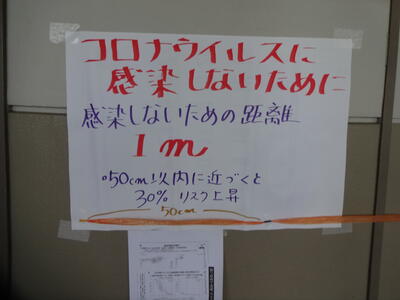 コロナウイルスに
感染しないために
感染しないための距離
1m
°50cm以内に近づくと
30% リスク上昇
50cm